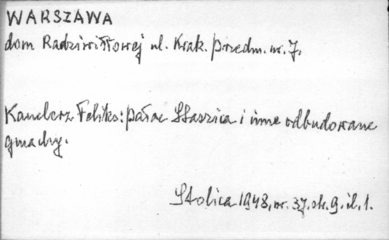 WARSZAWA
dom Radziwiłłowej ul. Krak. przedm. nr. 7.
Kanclerz Feliks: pałac Staszica i inne odbudowane
gmachy.
Stolica 1948, nr. 37, str. 9. il. 1.